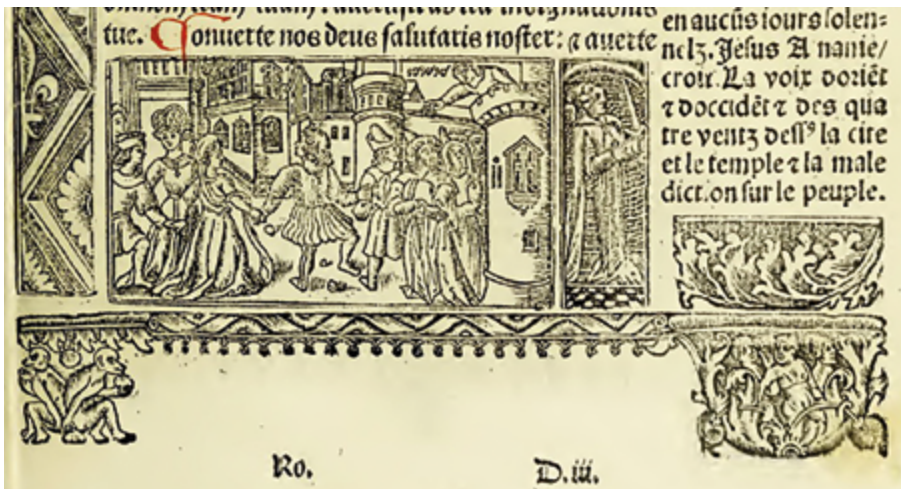 indignationis
tue. Conuerte nos deus salutaris noster: ⁊ auerte
en aucũs iours solen=
nelz. Jesus Ananie/
croit. La voix doriẽt
⁊ doccidẽt ⁊ des qua
tre ventz dessꝰ la cite
et le temple ⁊ la male
diction sur le peuple.
Ro. D.iii.